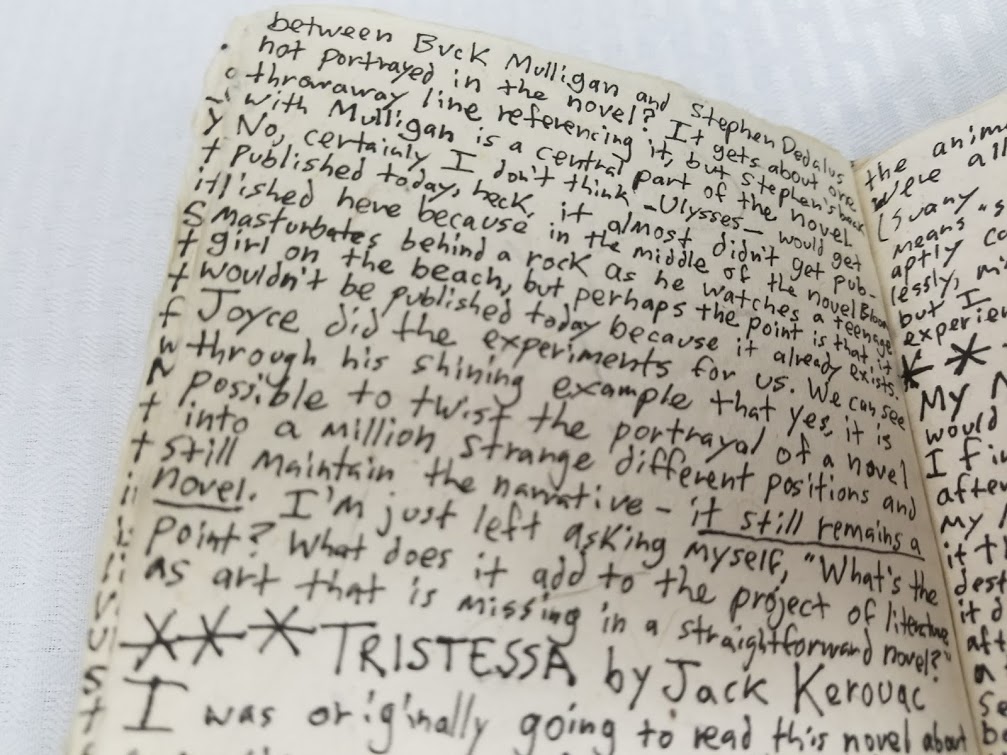 between Buck Mulligan and Stephen Dedalus
not portrayed in the novel? It gets about one
throwaway line referencing it, but Stephen's
with Mulligan is a central part of the novel.
No, certainly I don't think -Ulysses- would get
Published today, heck, it almost didn't get pub-
lished here because in the middle of the novel Bloom
masturbates behind a rock as he watches a teenage
girl on the beach, but perhaps the point is that it
wouldn't be published today because it already exists.
Joyce did the experiments for us. We can see
through his shining example that yes, it is
possible to twist the portrayal of a novel
into a million strange different positions and
still maintain the narrative - it still remains a
novel. I'm just left asking myself, "What's the
point? What does it add to the project of literature
as art that is missing in a straightforward novel?"
*** TRISTESSA by Jack Kerouac
I was originally going to read this novel about
the
were all
means
aptly
lessly,
but I
* *
My
would
I
after
my
it